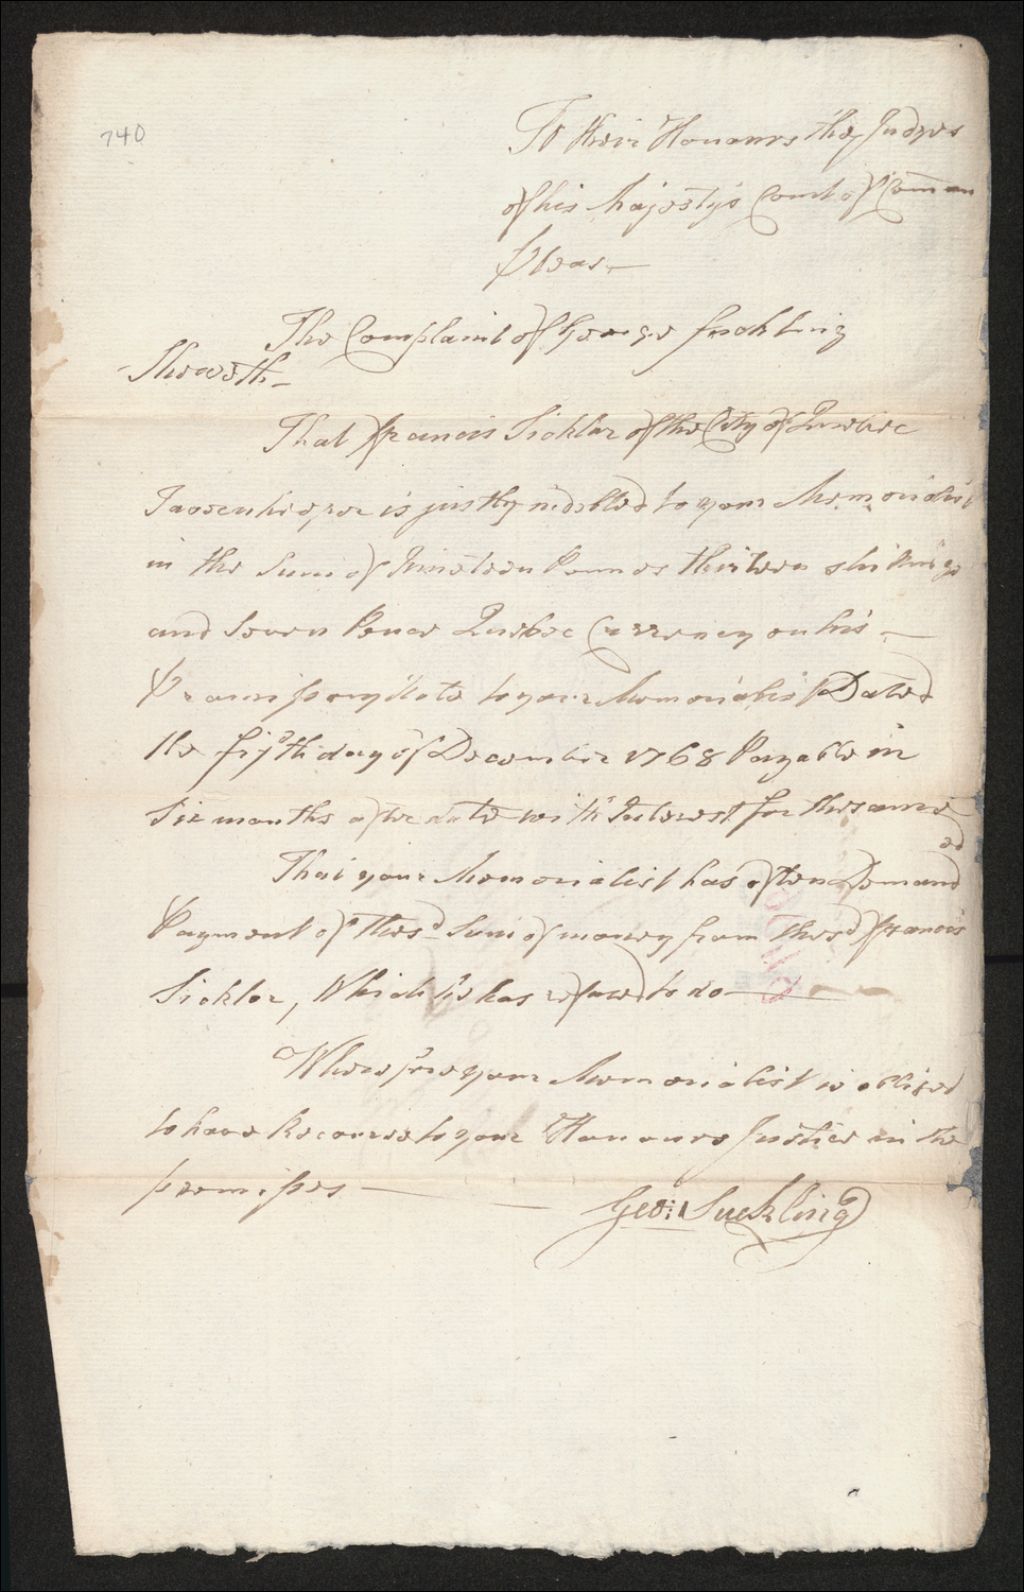 740
To their Honours the Judges
of his Majesty's Court of Common
Pleas —
The Complaint of George Suckling
Sheweth —
That Francis Sickler of the City of Quebec
Tavernkeeper is justly indebted to your Memorialist
in the Sum of Nineteen Pounds thirteen shillings
and Seven Pence Quebec Currency on his —
Promissory Note to your Memorialist Dated
the fifth day of December 1768 Payable in
Six months after date with Interest for the same
That your Memorialist has often Demanded
Payment of the sd Sum of money from the sd Francis
Sickler, Which he has refused to do —
Wherefore your Memorialist is obliged
to have Recourse to your Honours Justice in the
premisses —
Geo: Suckling